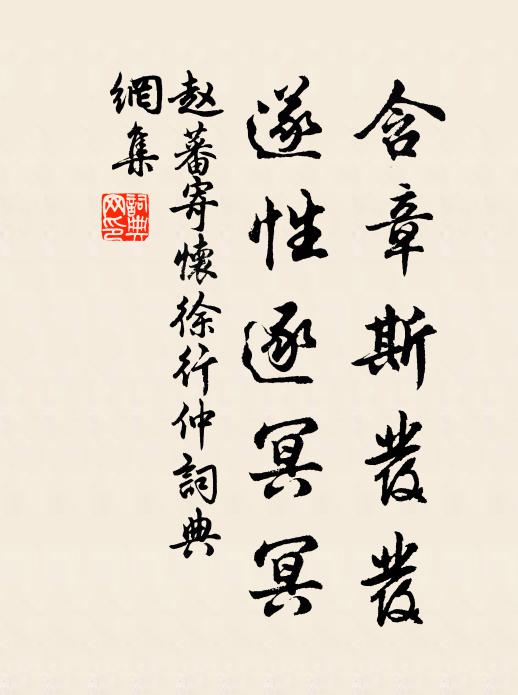 含章斯發發
遂性逐冥冥
赵蕃寄懷徐行仲詞典
網集
詞典
网印